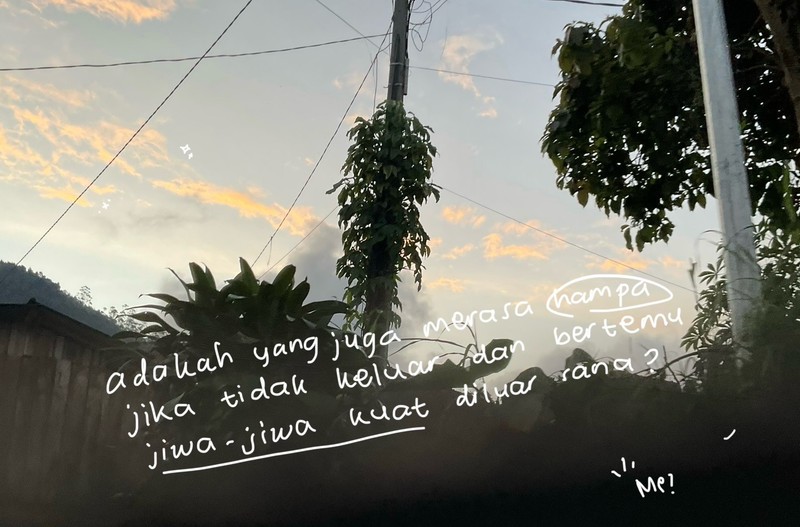 adakah yang juga merasa hampa
jika tidak keluar dan bertemu
jiwa-jiwa kuat diluar sana?
Me?